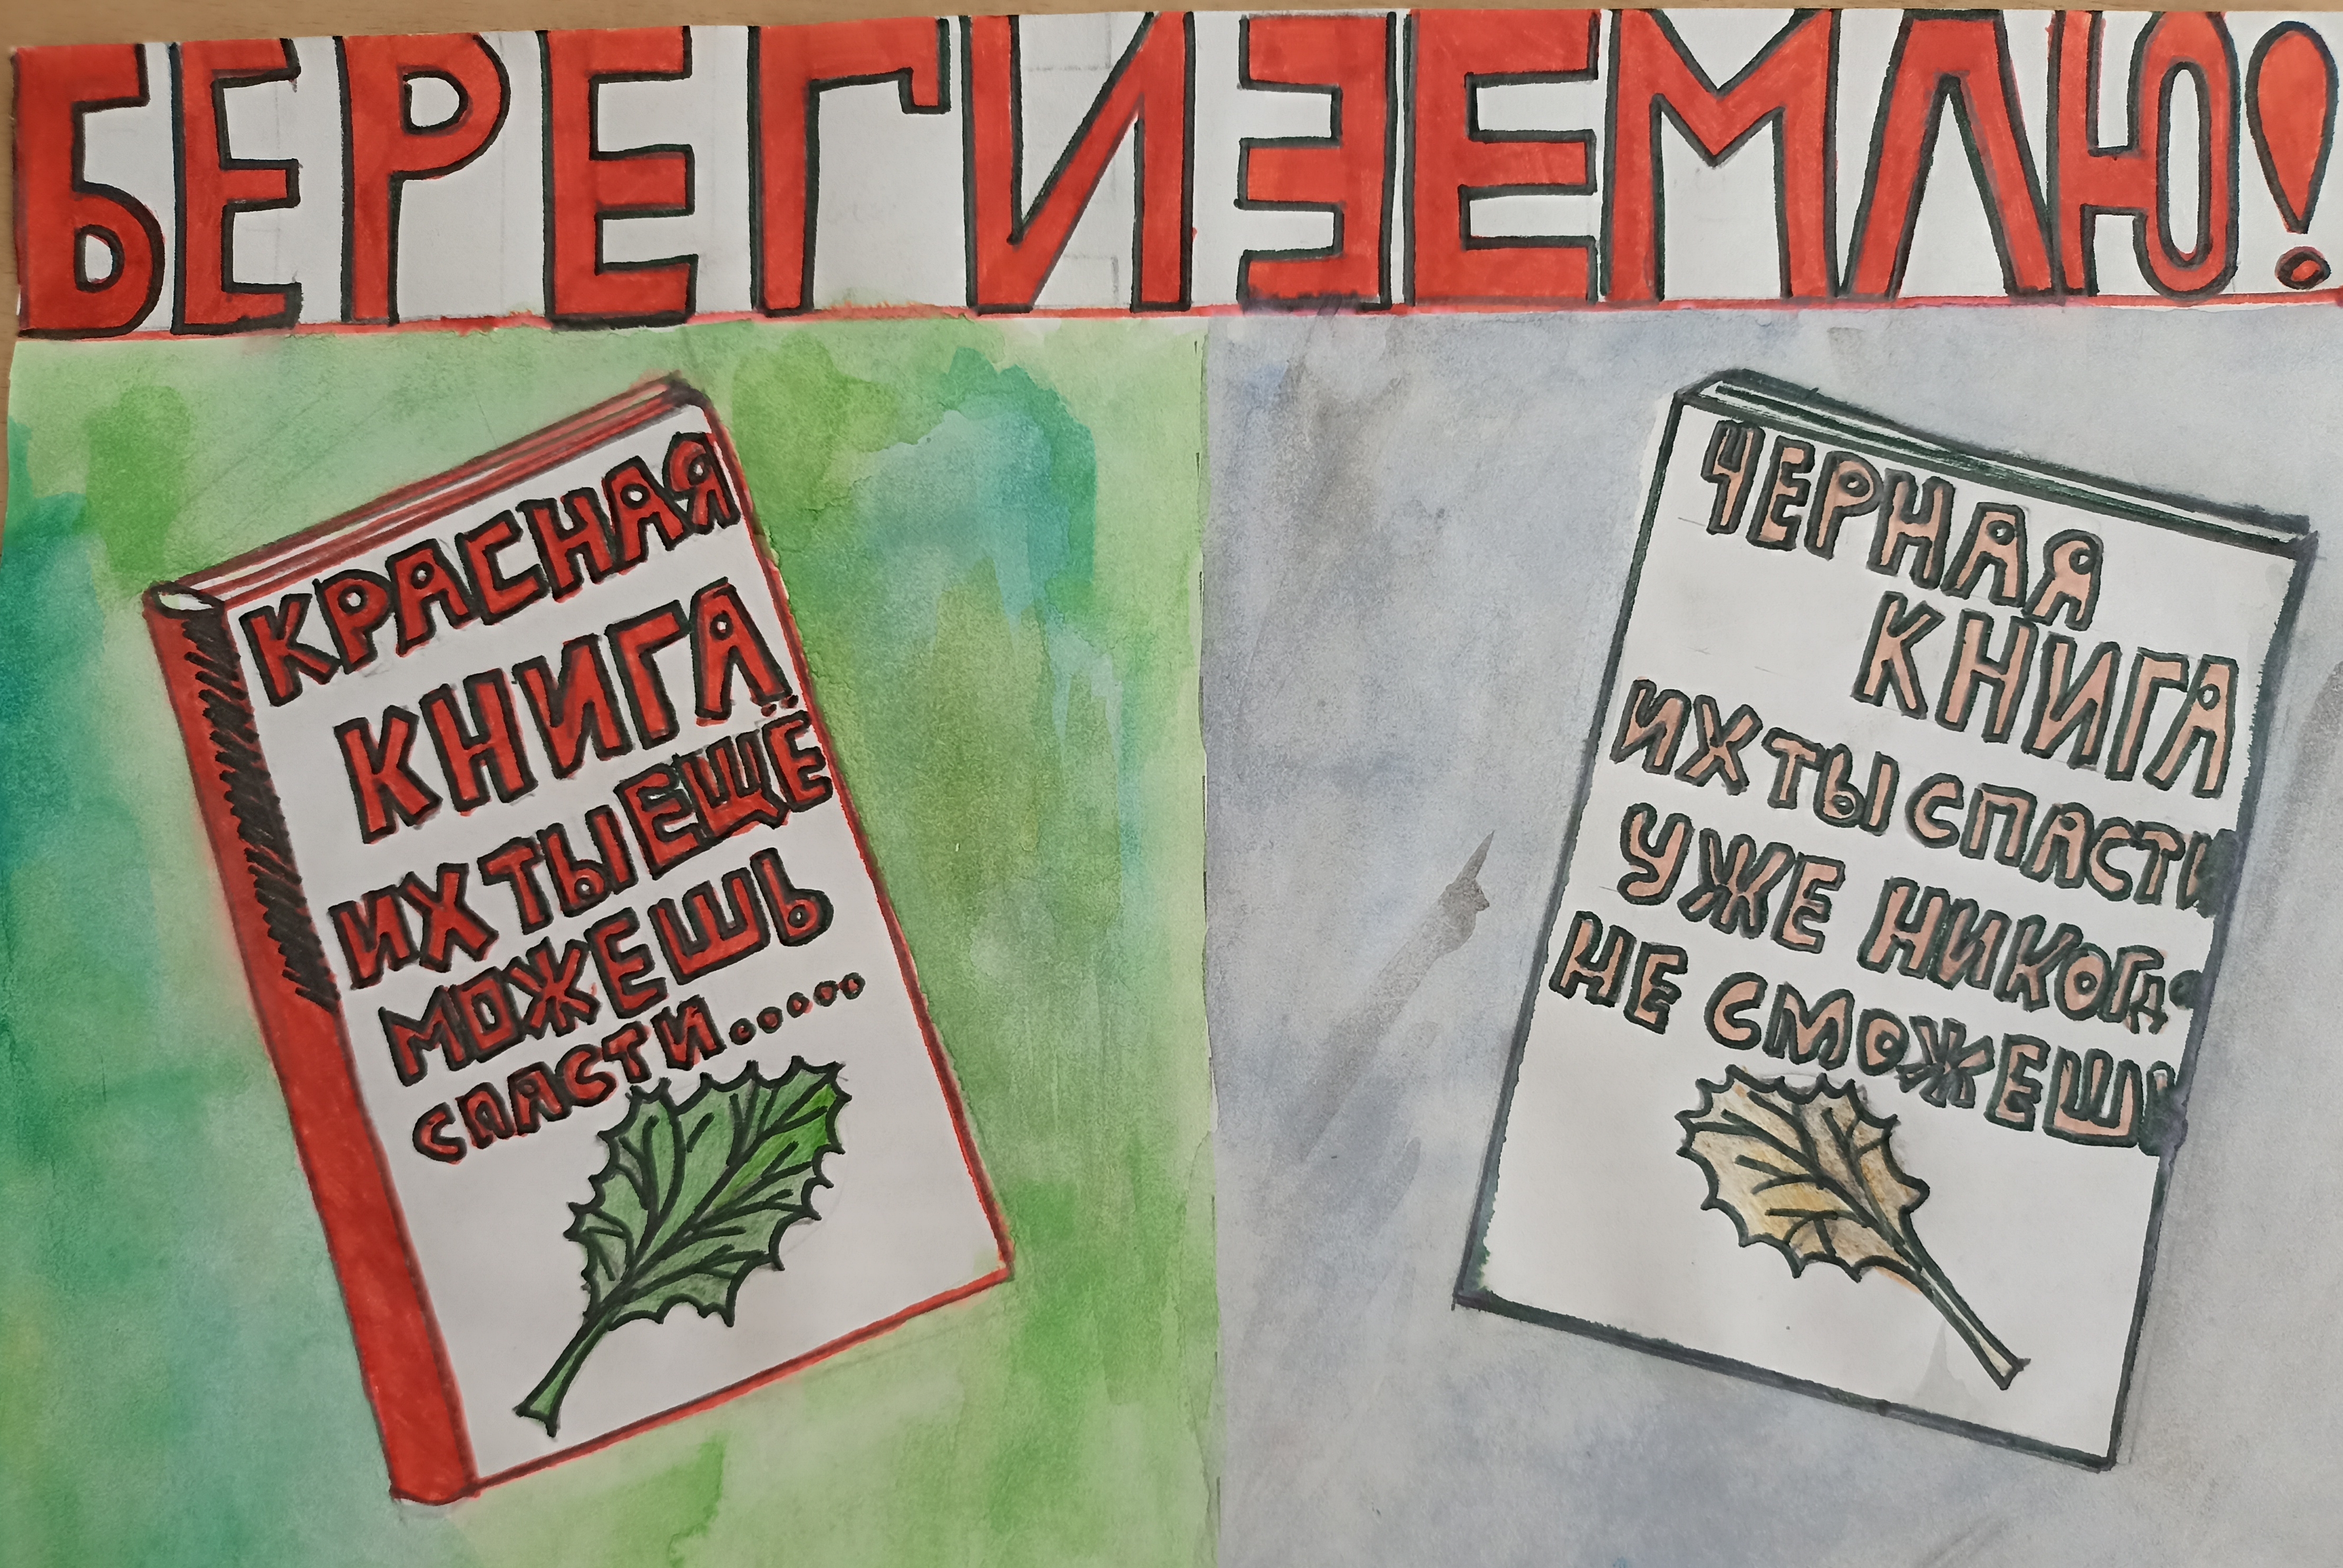 БЕРЕГИ ЗЕМЛЮ!
КРАСНАЯ
КНИГА
ИХ ТЫ ЕЩЁ
МОЖЕШЬ
СПАСТИ......
ЧЕРНАЯ
КНИГА
ИХ ТЫ СПАСТИ
УЖЕ НИКОГДА
НЕ СМОЖЕШЬ